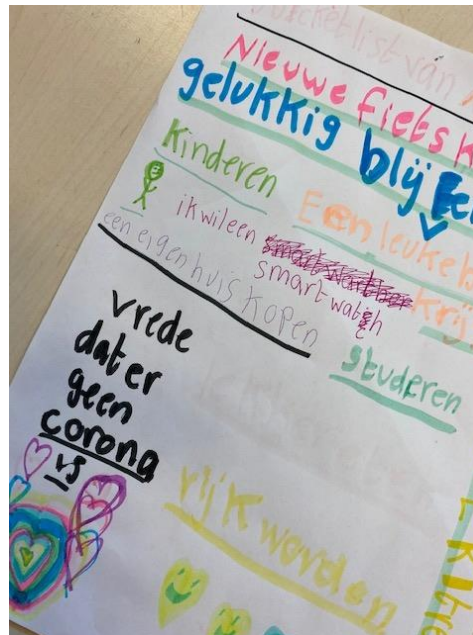 bucketlist van
Nieuwe fiets
gelukkig blij
Kinderen
Een leuke
ik wil een
smart watch
een eigen huis kopen
studeren
vrede
dat er
geen
corona
is
rijk worden